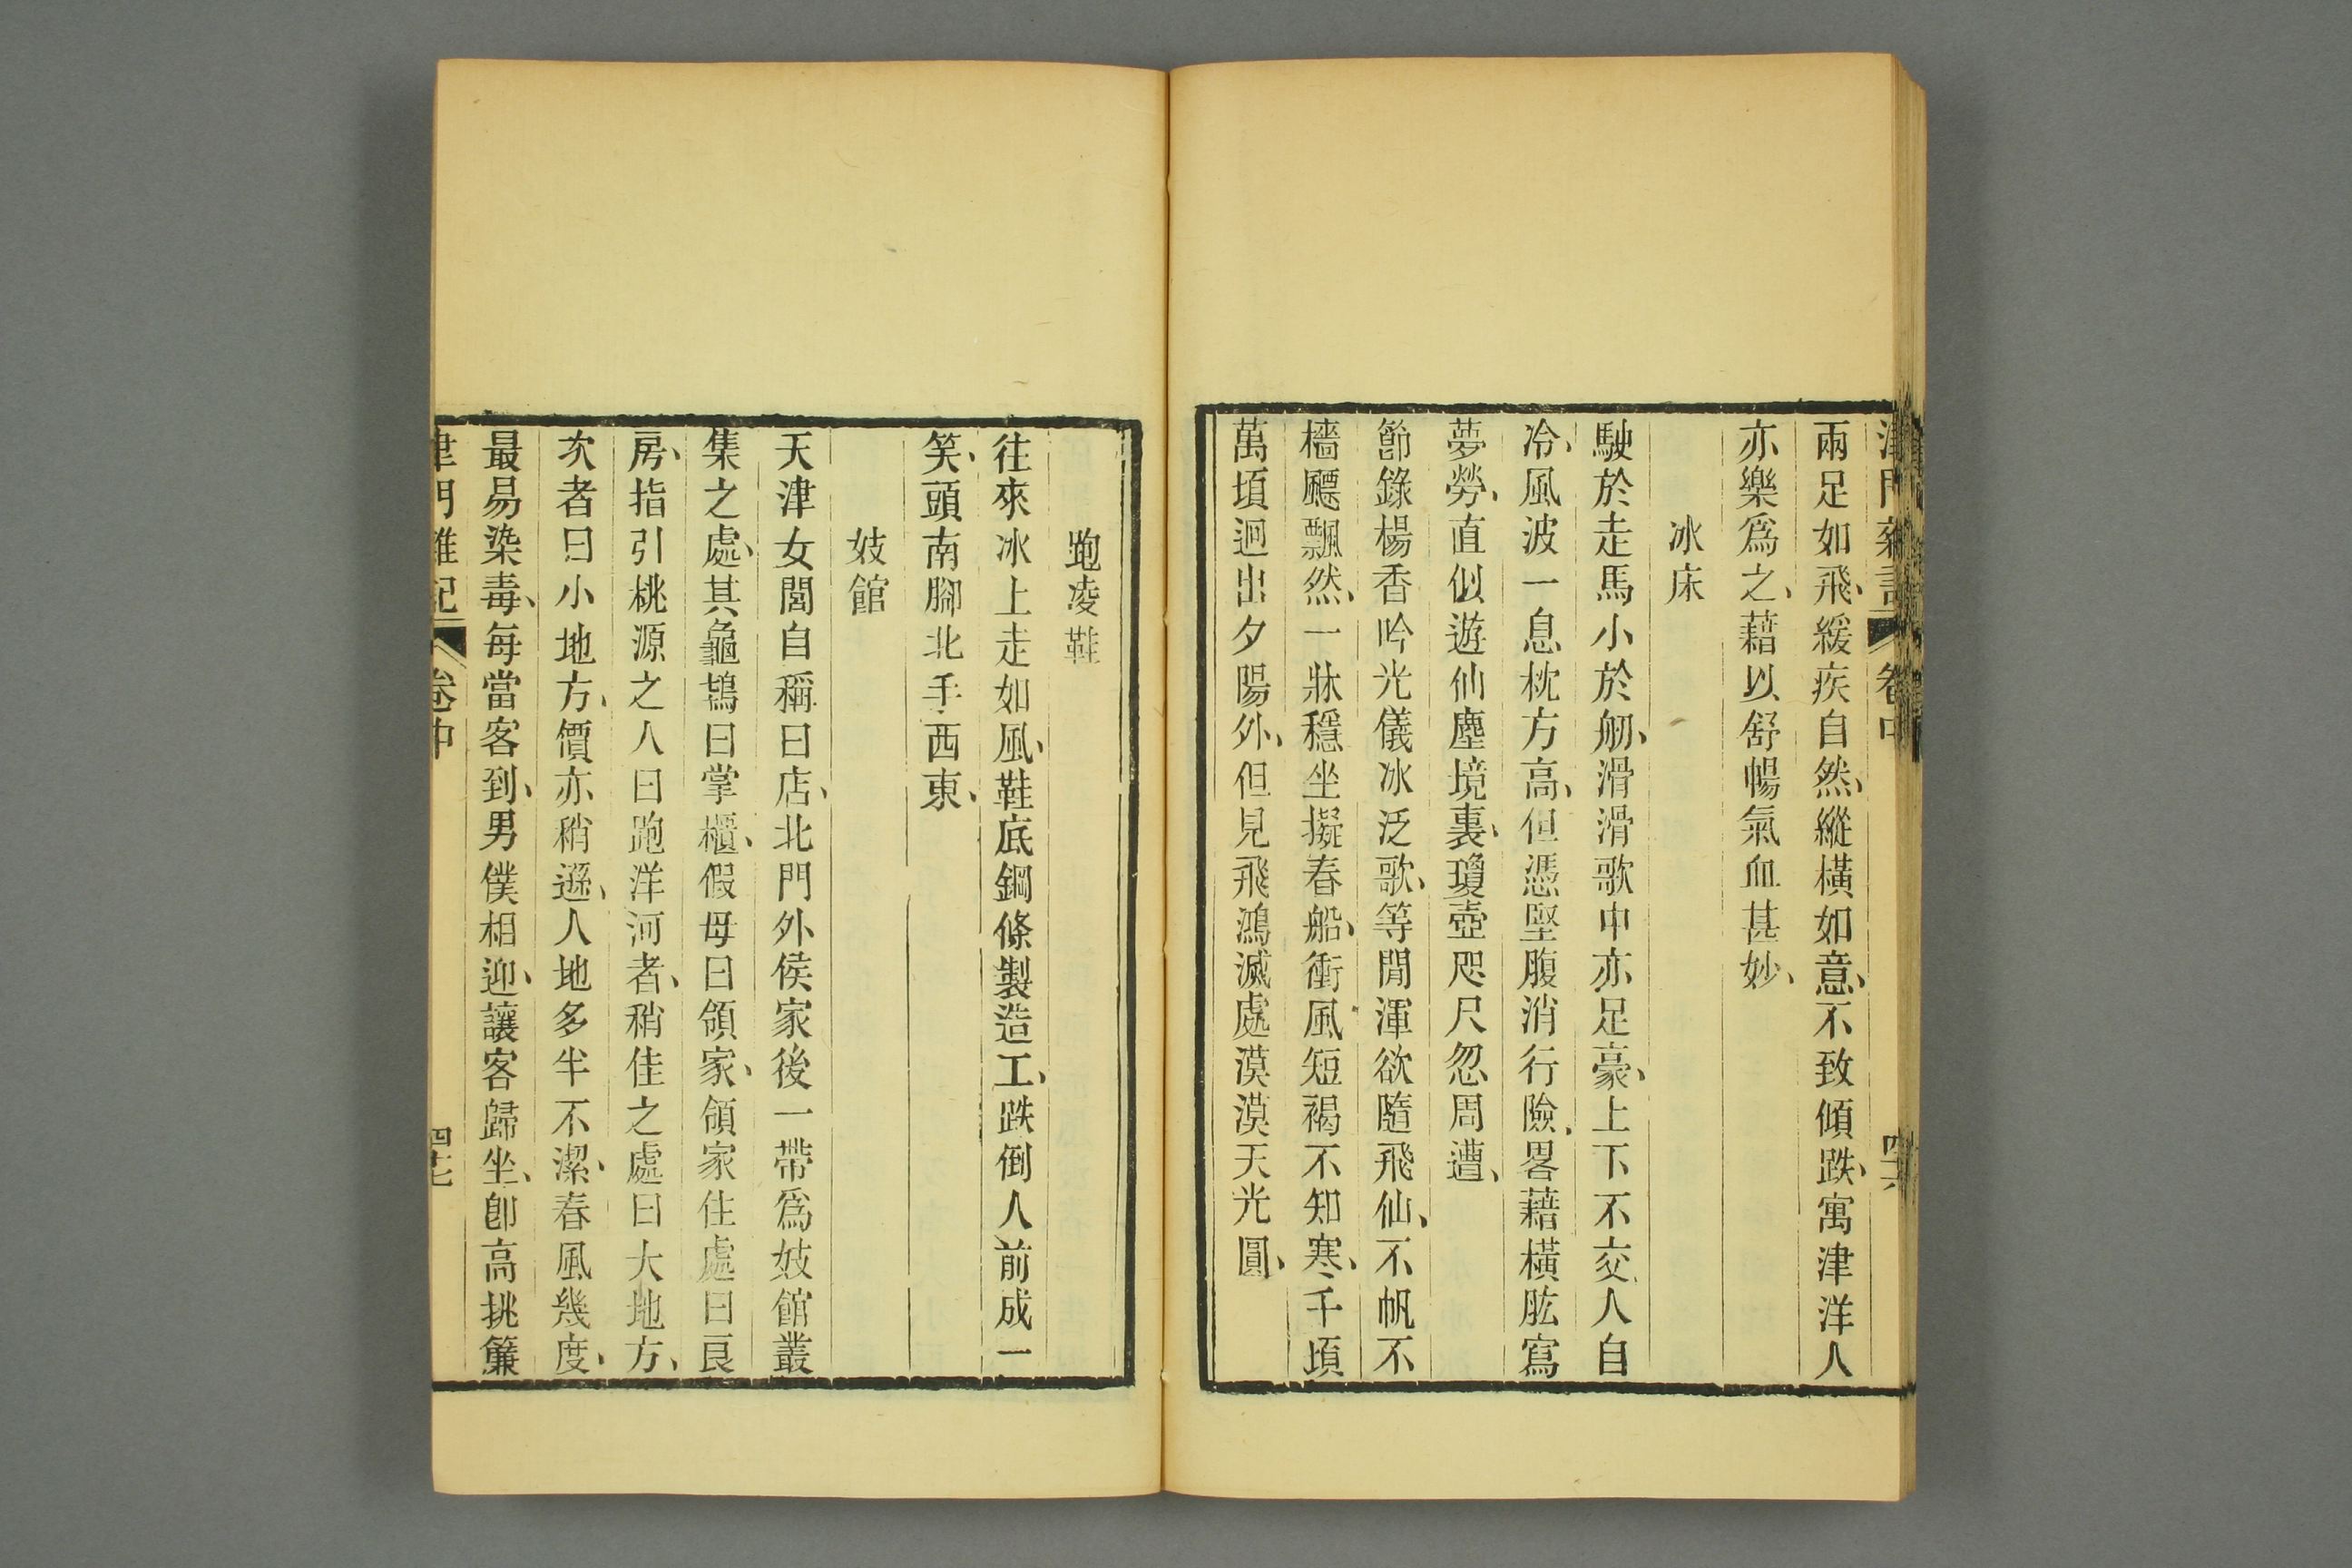 津門雜記 卷中 四六
兩足如飛、緩疾自然、縱橫如意、不致傾跌、寓津洋人
亦樂爲之、藉以舒暢氣血甚妙、
冰床
駛於走馬小於舠、滑滑歌中亦足豪、上下不交人自
冷、風波一息枕方高、但憑堅腹消行險、畧藉橫肱寫
夢勞、直似遊仙塵境裏、瓊壺咫尺忽周遭、
節錄楊香吟光儀冰泛歌、等閒渾欲隨飛仙、不帆不
檣颸飄然、一牀穩坐擬春船、衝風短褐不知寒、千頃
萬頃迴出夕陽外、但見飛鴻滅處漠漠天光圓、
跑凌鞋
往來冰上走如風、鞋底鋼條製造工、跌倒人前成一
笑、頭南腳北手西東、
妓館
天津女閭自稱曰店、北門外侯家後一帶爲妓館叢
集之處、其龜鴇曰掌櫃、假母曰領家、領家住處曰良
房、指引桃源之人曰跑洋河者、稍佳之處曰大地方、
次者曰小地方、價亦稍遜、人地多半不潔、春風幾度、
最易染毒、每當客到、男僕相迎、讓客歸坐、卽高挑簾
津門雜記 卷中 四七